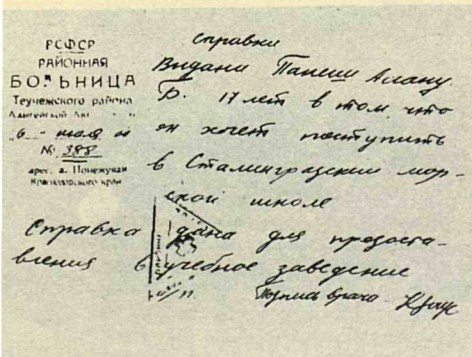 РСФСР
РАЙОННАЯ
БОЛЬНИЦА
Теучежского района
Адыгейской
"6" мая
№ 388
адрес. а. Понежукай
Краснодарского края
Справка
Выдана Панеш Аслану
Б. 17 лет в том, что
он хочет поступить
в Сталинградскии мор-
ской школе
Справка дана для предоста-
вления в учебное заведение
Подпись врача